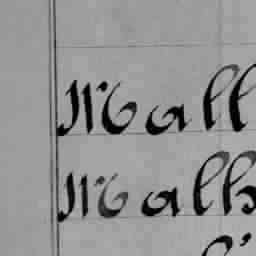 Mall
Malh